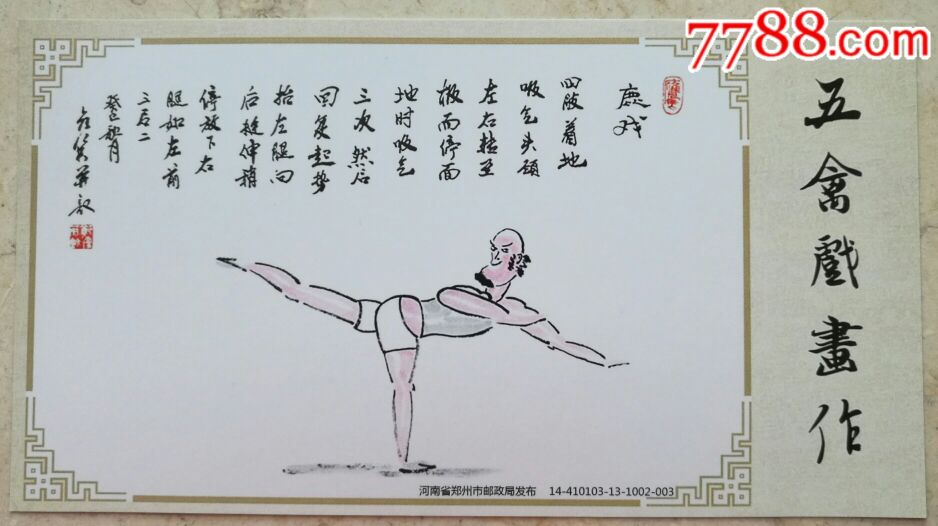 7788.com
五禽戲畫作
鹿戏
四肢着地
吸气头颈
左右转至
极而停面
地时吸气
三次然后
回复起势
抬左腿向
后挺伸稍
停放下右
腿如左前
三后二
癸巳秋月
河南省郑州市邮政局发布 14-410103-13-1002-003